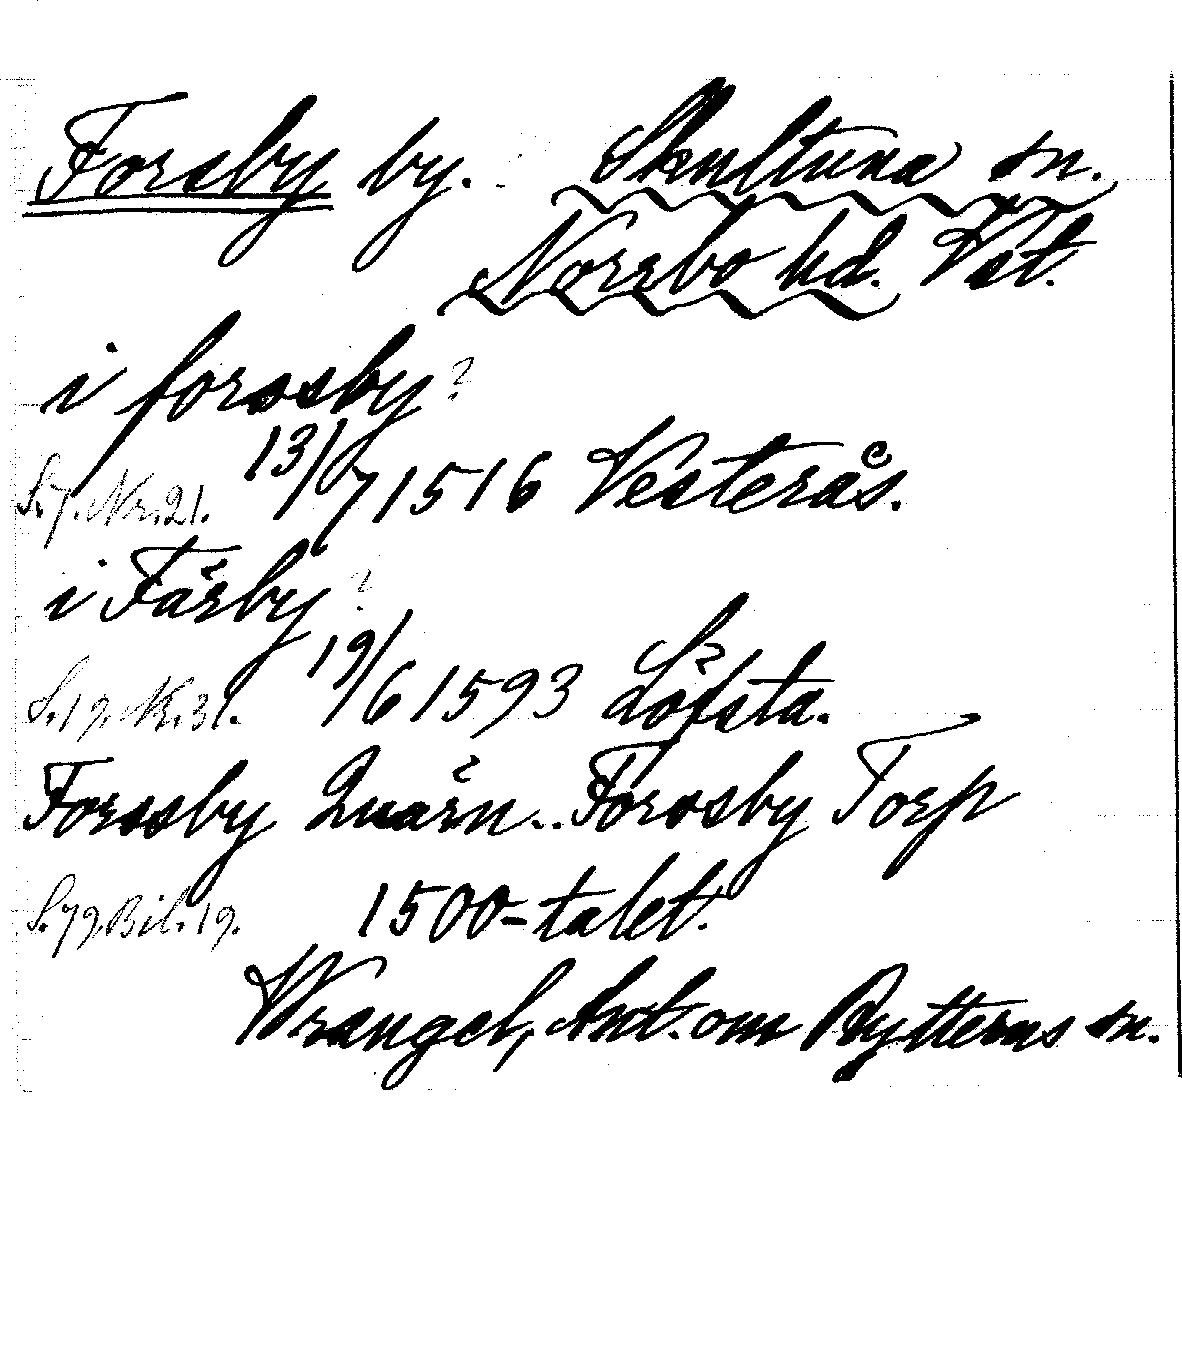 Forsby by. Skultuna sn.
Norrbo hd. Vst.
i forssby?
S. 7. Nr. 21. 13/7 1516 Vesterås.
i Färby?
S. 19. Nr. 31. 19/6 1593 Löfsta.
Forssby Quärn.. Forssby Torp
S. 79. Bil. 19. 1500-talet.
Wrangel, Ant. om Rytterns sn.